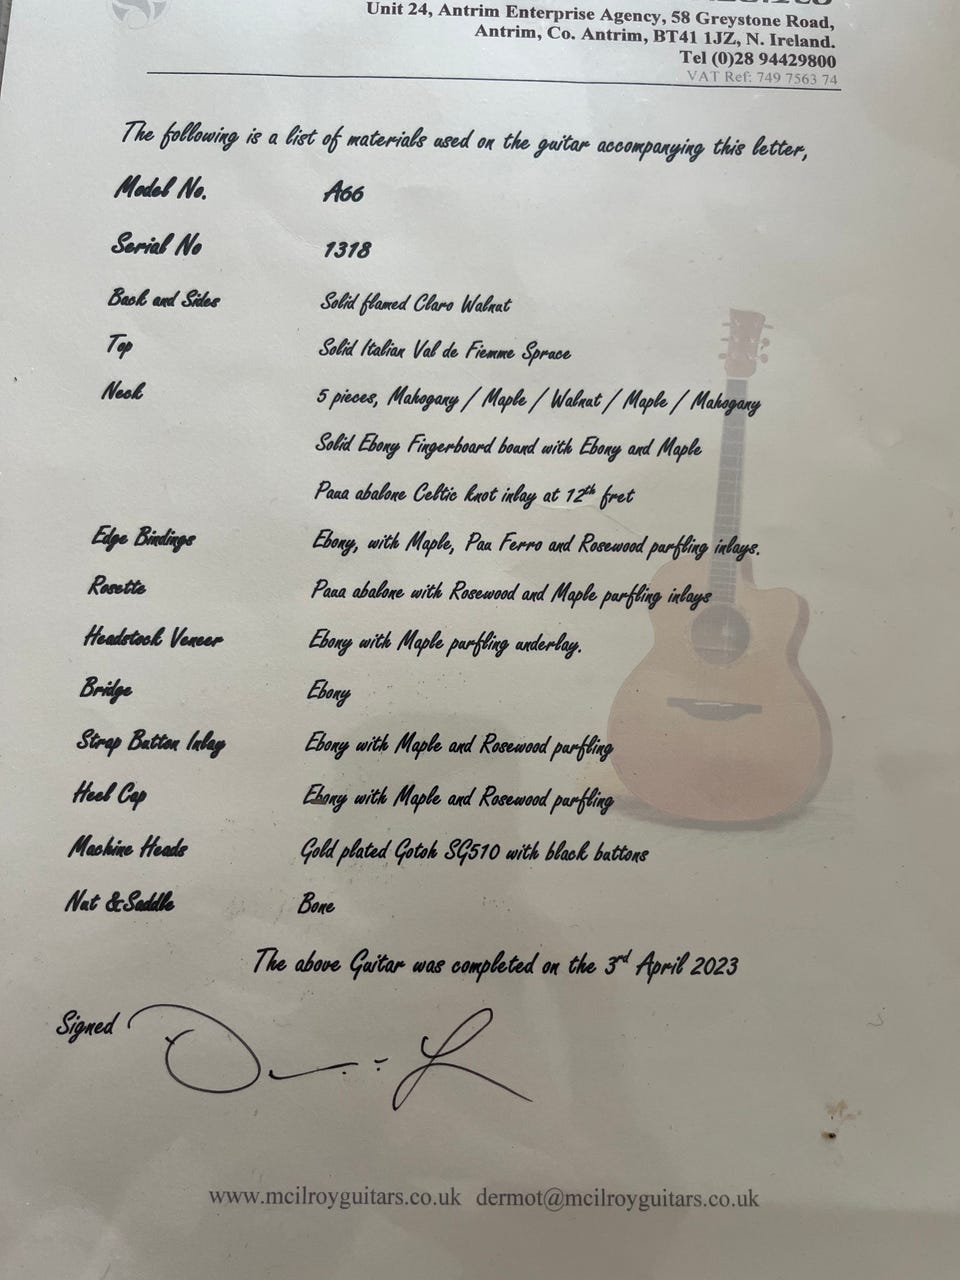 Unit 24, Antrim Enterprise Agency, 58 Greystone Road,
Antrim, Co. Antrim, BT41 1JZ, N. Ireland.
Tel (0)28 94429800
VAT Ref: 749 7563 74
The following is a list of materials used on the guitar accompanying this letter,
Model No. A66
Serial No 1318
Back and Sides Solid flamed Claro Walnut
Top Solid Italian Val de Fiemme Spruce
Neck 5 pieces, Mahogany / Maple / Walnut / Maple / Mahogany
Solid Ebony Fingerboard bound with Ebony and Maple
Paua abalone Celtic knot inlay at 12th fret
Edge Bindings Ebony, with Maple, Pau Ferro and Rosewood purfling inlays.
Rosette Paua abalone with Rosewood and Maple purfling inlays
Headstock Veneer Ebony with Maple purfling underlay.
Bridge Ebony
Strap Button Inlay Ebony with Maple and Rosewood purfling
Heel Cap Ebony with Maple and Rosewood purfling
Machine Heads Gold plated Gotoh SG510 with black buttons
Nut &Saddle Bone
The above Guitar was completed on the 3rd April 2023
Signed
www.mcilroyguitars.co.uk dermot@mcilroyguitars.co.uk